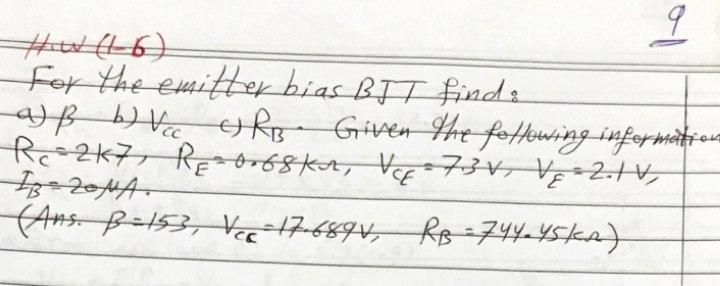 9
H.W (1-6)
For the emitter bias BJT find:
a) β b) Vcc c) RB. Given the following information
Rc=2k7, RE=0.68kΩ, VCE=7.3V, VE=2.1V,
IB=20μA.
(Ans. β=153, Vcc=17.689V, RB=744.45kΩ)